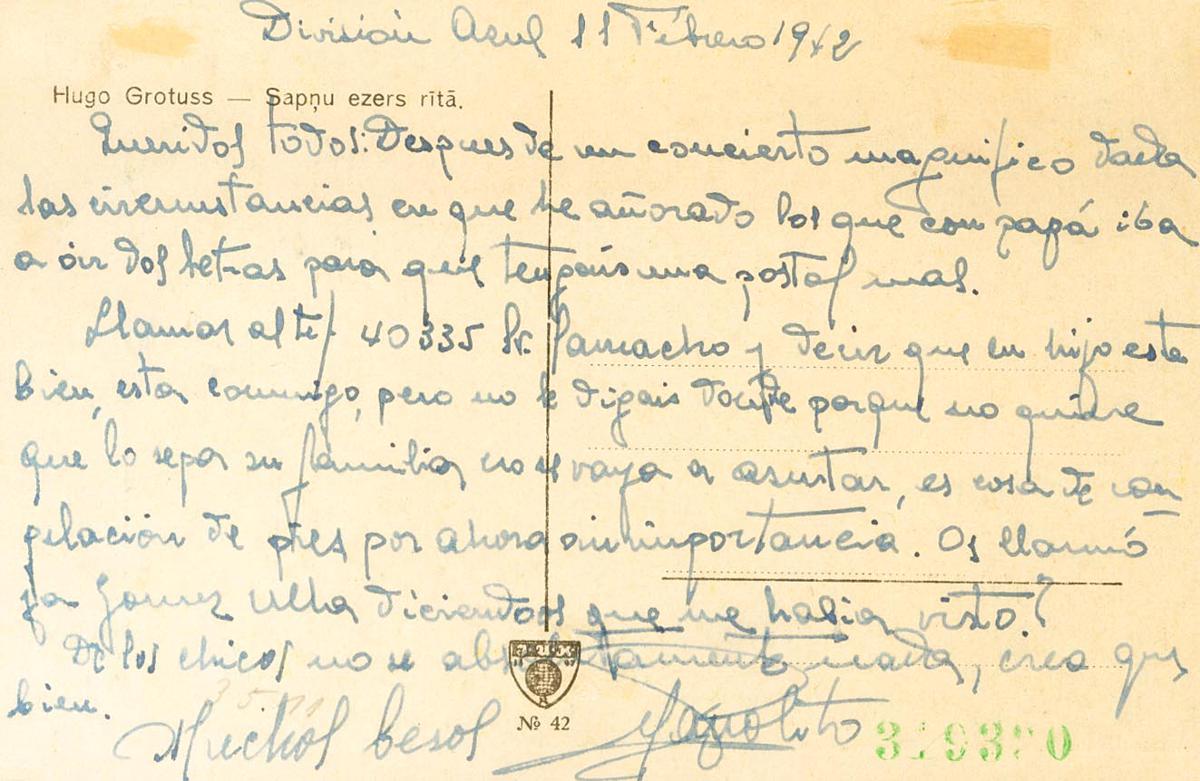 División Azul 11 Febrero 1942
Hugo Grotuss — Sapņu ezers rītā.
Queridos todos: Despues de un concierto magnifico dada
las circunstancias en que he añorado los que con papá iba
a oir dos letras para que tengais una postal mas.
Llamar al telf 40335 Sr. Camacho y decir que su hijo esta
bien, esta conmigo, pero no le digais donde porque no quiere
que lo sepa su familia no se vaya a asustar, es cosa de con
gelación de pies por ahora sin importancia. Os llamó
ya Gomez Ulla diciendoos que me habia visto?
De los chicos no se absolutamente nada, creo que
bien.
Muchos besos
Nº 42